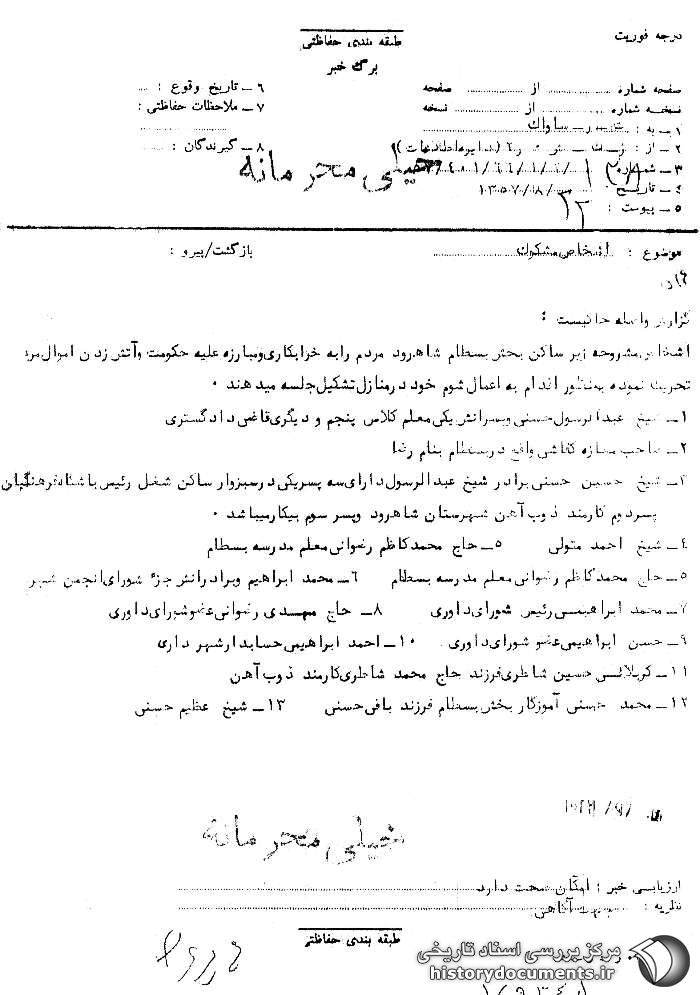 درجه فوریت
طبقه بندی حفاظتی
برگ خبر
صفحه شماره ... از ... صفحه
نسخه شماره ... از ... نسخه
۱ــ به : ساواک
۲ــ از :
۳ــ شماره
۴ــ تاریخ
۵ــ پیوست :
۶ــ تاریخ وقوع :
۷ــ ملاحظات حفاظتی :
۸ــ گیرندگان :
خیلی محرمانه
موضوع : اشخاص مشکوک
بازگشت/پیرو :
گزارش واصله حاکیست :
اشخاص مشروحه زیر ساکن بخش بسطام شاهرود مردم را به خرابکاری و مبارزه علیه حکومت و آتش زدن اموال مردم
تحریک نموده بمنظور اقدام به اعمال شوم خود در منازل تشکیل جلسه میدهند ۰
۱ــ شیخ عبدالرسول حسنی و پسرانش یکی معلم کلاس پنجم و دیگری قاضی دادگستری
۲ــ صاحب مغازه کفاشی واقع در بسطام بنام رضا
۳ــ شیخ حسین حسنی برادر شیخ عبدالرسول دارای سه پسر یکی در سبزوار ساکن شغل رئیس باشگاه فرهنگیان
پسر دوم کارمند ذوب آهن شهرستان شاهرود و پسر سوم بیکار میباشد ۰
۴ــ شیخ احمد متولی ۵ــ حاج محمد کاظم رضوانی معلم مدرسه بسطام
۵ــ حاج محمد کاظم رضوانی معلم مدرسه بسطام ۶ــ محمد ابراهیم و برادرانش جزء شورای انجمن شهر
۷ــ محمد ابراهیمی رئیس شورای داوری ۸ــ حاج مهدی رضوانی عضو شورای داوری
۹ــ حسن ابراهیمی عضو شورای داوری ۱۰ــ احمد ابراهیمی حسابدار شهرداری
۱۱ــ کربلائی حسین شاطری فرزند حاج محمد شاطری کارمند ذوب آهن
۱۲ــ محمد حسنی آموزگار بخش بسطام فرزند باقی حسنی ۱۳ــ شیخ عظیم حسنی
خیلی محرمانه
ارزیابی خبر : امکان صحت دارد
نظریه : جهت آگاهی
طبقه بندی حفاظتی
مرکز بررسی اسناد تاریخی
historydocuments.ir